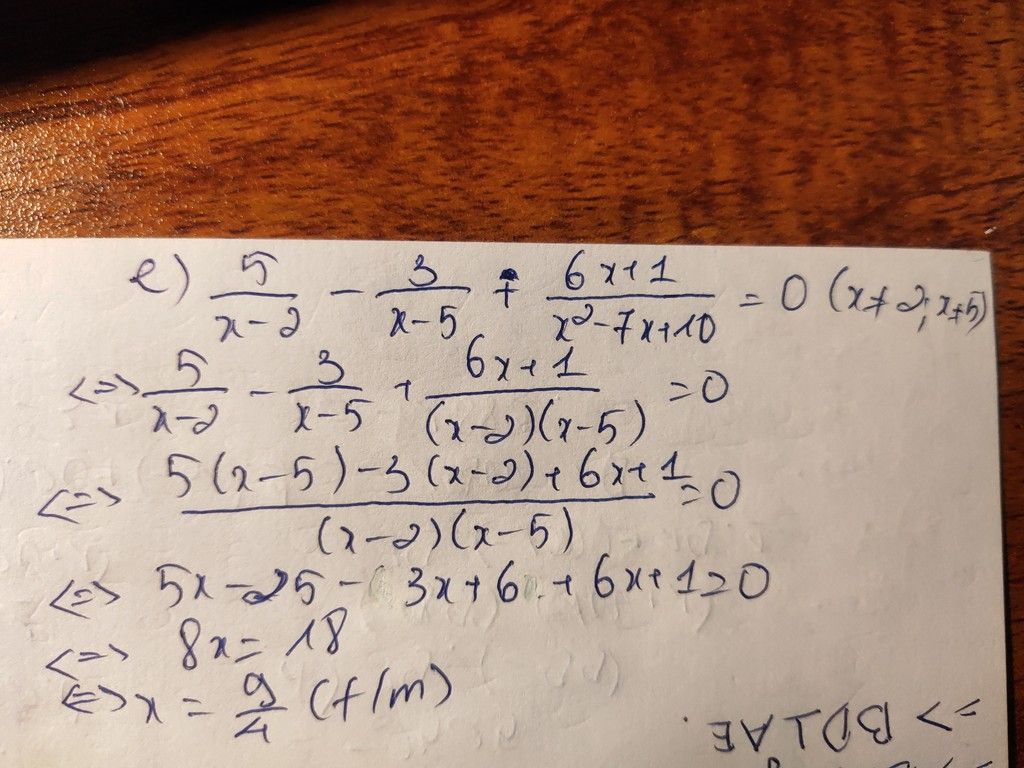 e) 5/(x-2) - 3/(x-5) + (6x+1)/(x²-7x+10) = 0 (x≠2; x≠5)
<=> 5/(x-2) - 3/(x-5) + (6x+1)/((x-2)(x-5)) = 0
<=> (5(x-5)-3(x-2)+6x+1)/((x-2)(x-5)) = 0
<=> 5x-25-3x+6+6x+1=0
<=> 8x=18
<=> x = 9/4 (t/m)
=> BD⊥AE.